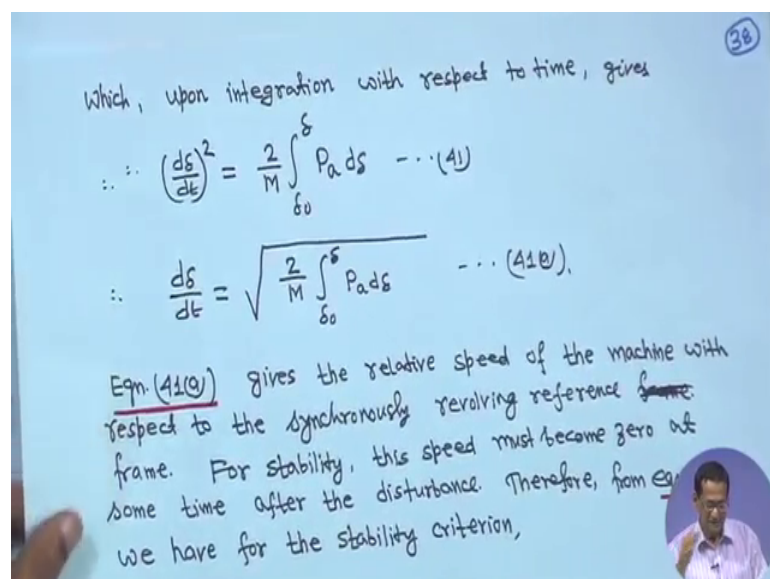 38
Which, upon integration with respect to time, gives
∴ ∵ (dδ/dt)² = 2/M ∫_{δ0}^{δ} Pa dδ --- (41)
∴ dδ/dt = √(2/M ∫_{δ0}^{δ} Pa dδ) --- (41(a)).
Eqn. (41(a)) gives the relative speed of the machine with
respect to the synchronously revolving reference
frame. For stability, this speed must become zero at
some time after the disturbance. Therefore, from
we have for the stability criterion,